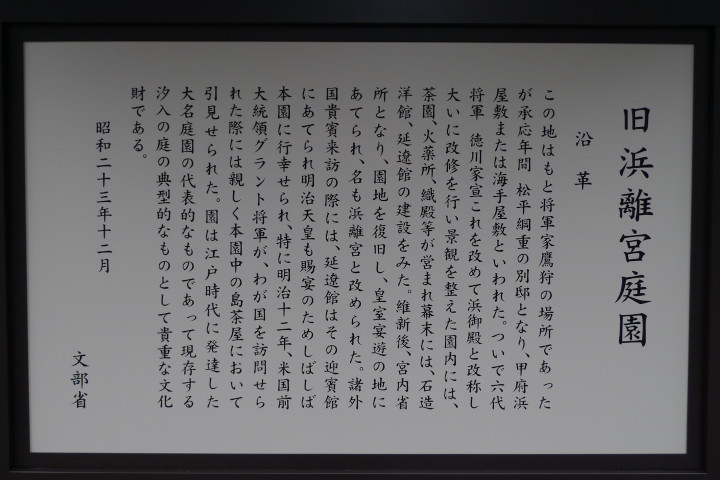 旧浜離宮庭園
沿革
この地はもと将軍家鷹狩の場所であった
が承応年間 松平綱重の別邸となり、甲府浜
屋敷または海手屋敷といわれた。ついで六代
将軍 徳川家宣これを改めて浜御殿と改称し
大いに改修を行い景観を整えた園内には、
茶園、火薬所、織殿等が営まれ幕末には、石造
洋館、延遼館の建設をみた。維新後、宮内省
所となり、園地を復旧し、皇室宴遊の地に
あてられ、名も浜離宮と改められた。諸外
国貴賓来訪の際には、延遼館はその迎賓館
にあてられ明治天皇も賜宴のためしばしば
本園に行幸せられ、特に明治十二年、米国前
大統領グラント将軍が、わが国を訪問せら
れた際には親しく本園中の島茶屋において
引見せられた。園は江戸時代に発達した
大名庭園の代表的なものであって現存する
汐入の庭の典型的なものとして貴重な文化
財である。
昭和二十三年十二月
文部省